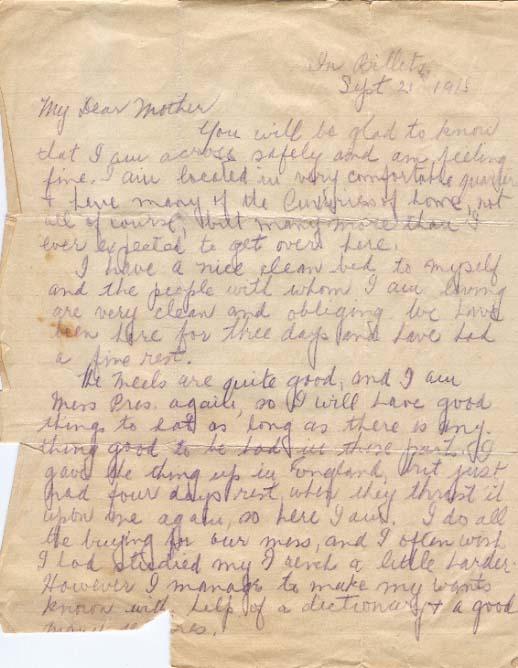 In Billets
Sept 21 1915
My Dear Mother
You will be glad to know
that I am across safely and am feeling
fine. I am located in very comfortable quarters
+ have many of the luxuries of home, not
all of course, but many more than I
ever expected to get over here.
I have a nice clean bed to myself
and the people with whom I am living
are very clean and obliging We have
been here for three days and have had
a fine rest.
The meels are quite good, and I am
Mess Pres. again, so I will have good
things to eat as long as there is any-
thing good to be had in these parts. I
gave the thing up in England, but just
had four days rest, when they thrust it
upon me again, so here I am. I do all
the buying for our mess, and I often wish
I had studied my French a little harder.
However I manage to make my wants
known with help of a dictionary + a good
many